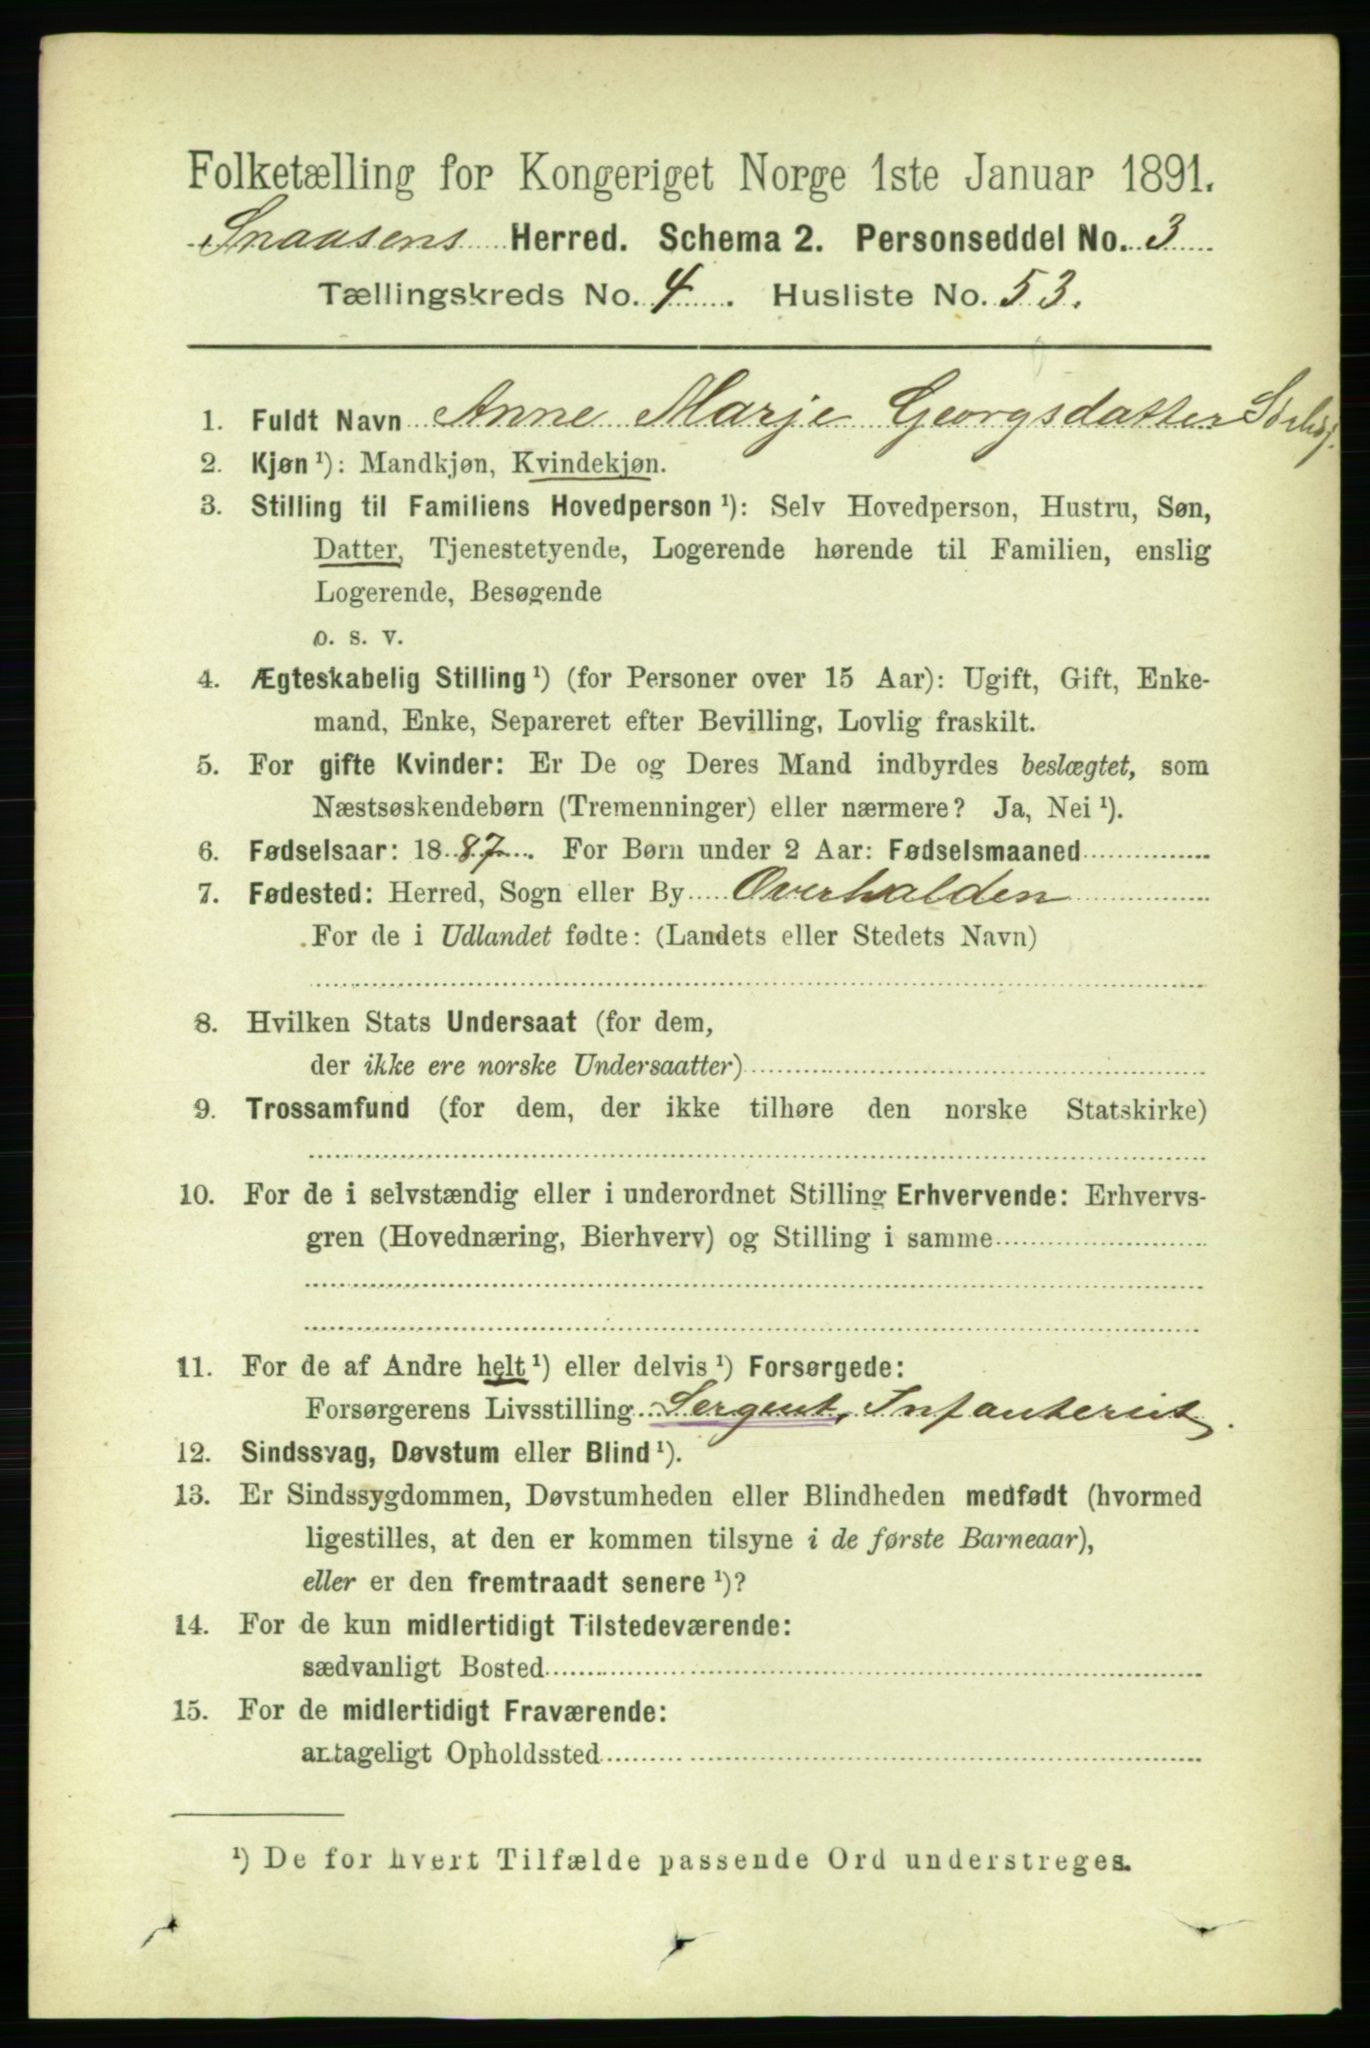 Folketælling for Kongeriget Norge 1ste Januar 1891.
Snaasens Herred. Schema 2. Personseddel No. 3
Tællingskreds No. 4. Husliste No. 53.
1. Fuldt Navn Anne Marje Georgsdatter
2. Kjøn ¹): Mandkjøn, Kvindekjøn.
3. Stilling til Familiens Hovedperson ¹): Selv Hovedperson, Hustru, Søn,
Datter, Tjenestetyende, Logerende hørende til Familien, enslig
Logerende, Besøgende
o. s. v.
4. Ægteskabelig Stilling ¹) (for Personer over 15 Aar): Ugift, Gift, Enke-
mand, Enke, Separeret efter Bevilling, Lovlig fraskilt.
5. For gifte Kvinder: Er De og Deres Mand indbyrdes beslægtet, som
Næstsøskendebørn (Tremenninger) eller nærmere? Ja, Nei ¹).
6. Fødselsaar: 1887. For Børn under 2 Aar: Fødselsmaaned
7. Fødested: Herred, Sogn eller By Overhalden
For de i Udlandet fødte: (Landets eller Stedets Navn)
8. Hvilken Stats Undersaat (for dem,
der ikke ere norske Undersaatter)
9. Trossamfund (for dem, der ikke tilhøre den norske Statskirke)
10. For de i selvstændig eller i underordnet Stilling Erhvervende: Erhvervs-
gren (Hovednæring, Bierhverv) og Stilling i samme
11. For de af Andre helt ¹) eller delvis ¹) Forsørgede:
Forsørgerens Livsstilling Sergent, Infanterist.
12. Sindssvag, Døvstum eller Blind ¹).
13. Er Sindssygdommen, Døvstumheden eller Blindheden medfødt (hvormed
ligestilles, at den er kommen tilsyne i de første Barneaar),
eller er den fremtraadt senere ¹)?
14. For de kun midlertidigt Tilstedeværende:
sædvanligt Bosted
15. For de midlertidigt Fraværende:
antageligt Opholdssted
¹) De for hvert Tilfælde passende Ord understreges.